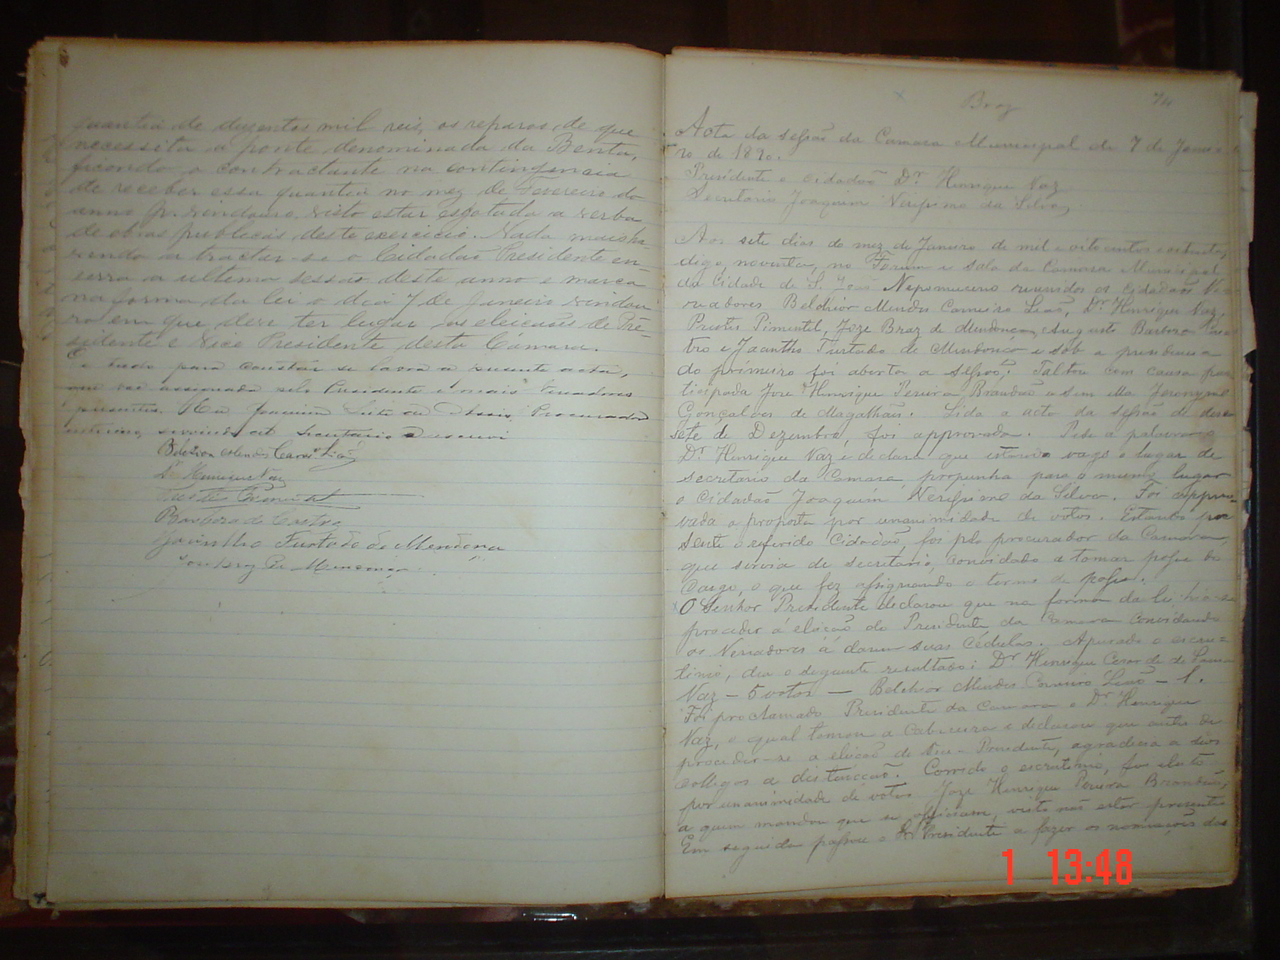 quantia de dusentos mil reis, os reparos, de que
necessita a ponte denominada da Benta,
ficando o contractante na contingencia
de receber essa quantia no mez de Fevereiro do
anno p. vindouro, visto estar esgotada a verba
de obras publicas deste exercicio. Nada mais ha
vendo a tractar-se o Cidadão Presidente en-
serra a ultima sessão deste anno e marca
na forma da lei o dia 7 de Janeiro vindou
ro em que deve ter lugar as eleicões de Pre-
sidente e Vice Presidente desta Camara.
E tudo para constar se lavra a presente acta,
que vai assignada pelo Presidente e mais Vereadores
presentes. Eu Joaquim Procurador
interino servindo de Secretario o escrevi
Belchior Mendes Carnr.º Leão
Dr Henrique Vaz
Prestes Pimentel
Barbosa de Castro
Jacintho Furtado de Mendonça
José Braz de Mendonça
Braz 74
Acta da sessão da Camara Municipal de 7 de Janei
ro de 1890.
Presidente o cidadão Dr. Henrique Vaz
Secretario Joaquim da Silva
Aos sete dias do mez de Janeiro de mil e oito centos e oitenta,
digo, noventa, no Forum e sala da Camara Municipal
da Cidade de S. João Nepomuceno reunidos os cidadãos Ve
readores Belchior Mendes Carneiro Leão, Dr Henrique Vaz,
Prestes Pimentel, Joze Braz de Mendonca, Augusto Barbosa de Cas
tro e Jacintho Furtado de Mendonca e sob a presidencia
do primeiro foi aberta a sessão; Faltou com causa par
ticipada Jose Henrique Pereira Brandão e sem ella Jeronymo
Gonçalves de Magalhães. Lida a acta da sessão de deze
sete de Dezembro, foi approvada. Pede a palavra o
Dr Henrique Vaz e declara que estando vago o lugar de
secretario da Camara, propunha para o mesmo lugar
o cidadão Joaquim da Silva. Foi appro
vada a proposta por unanimidade de votos. Estando pre
sente o referido Cidadão foi pelo procurador da Camara,
que servia de secretario, convidado a tomar posse do
cargo, o que fez assignando o termo de posse.
O Senhor Presidente declarou que na forma da lei hia se
proceder á eleicão do Presidente da Camara convidando
os Vereadores á darem suas cédulas. Apurado o escru-
tinio, deu o seguinte resultado: Dr Henrique Cesar de Souza
Vaz - 5 votos - Belchior Mendes Carneiro Leão - 1.
Foi proclamado Presidente da Camara o Dr Henrique
Vaz, o qual tomou a Cabeceira e declarou que antes de
proceder-se a eleicão do Vice-Presidente, agradecia a seos
collegas a distincção. Corrido o escrutinio, foi eleito
por unanimidade de votos Joze Henrique Pereira Brandão,
a quem mandou que se officiasse, visto não estar presente.
Em seguida passou o Sr Presidente a fazer as nomeações das
1 13:48